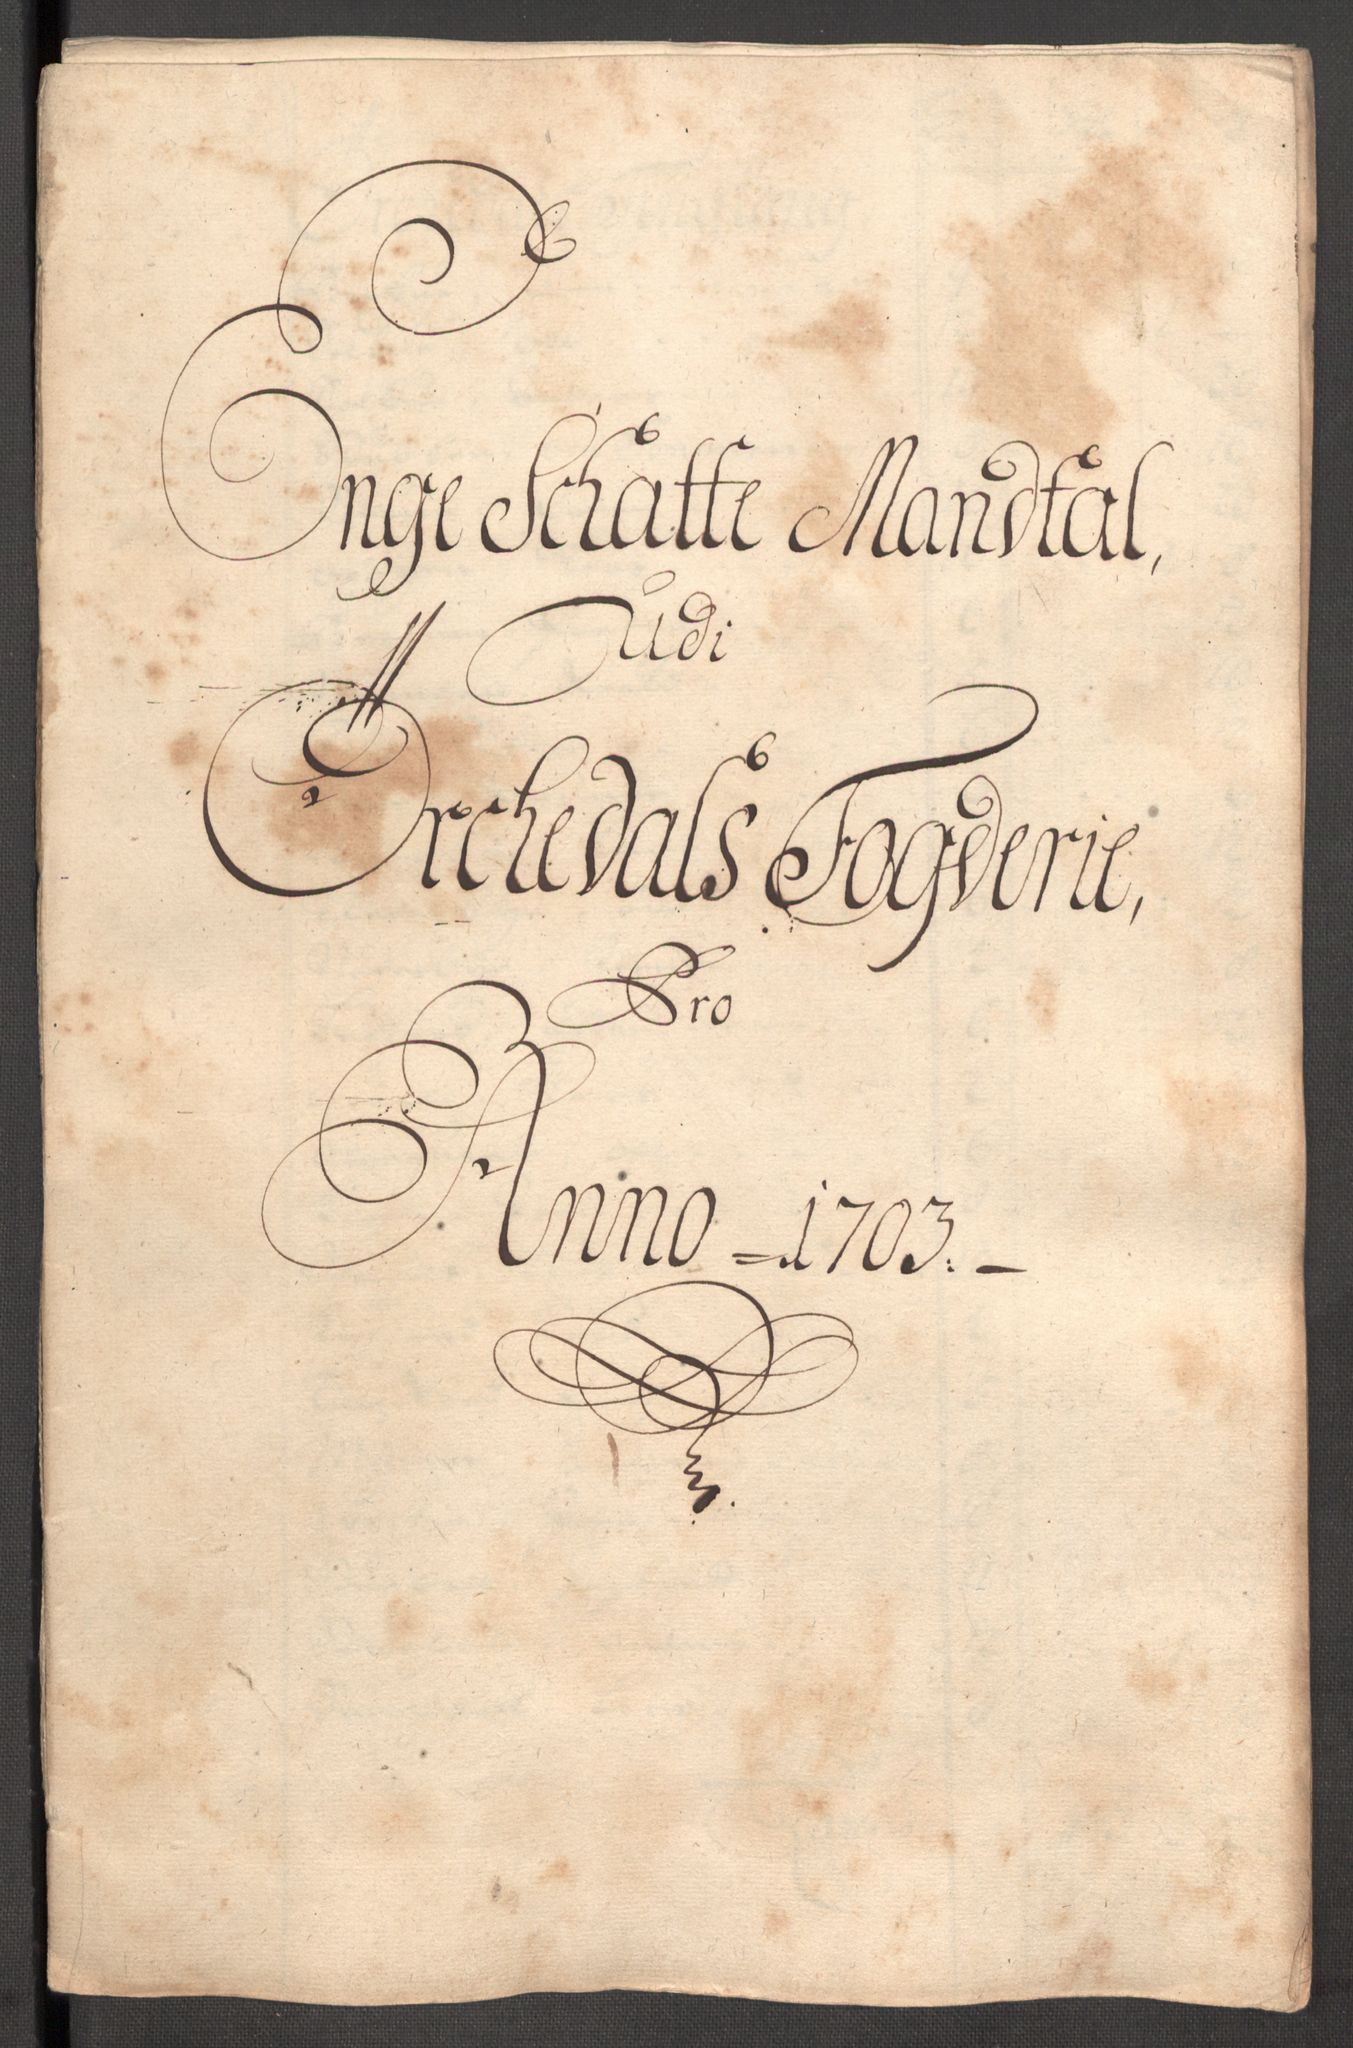 Enge Schatte Mandtal,
Udi
Orchedals Fogderie,
Pro
Anno = 1703. -